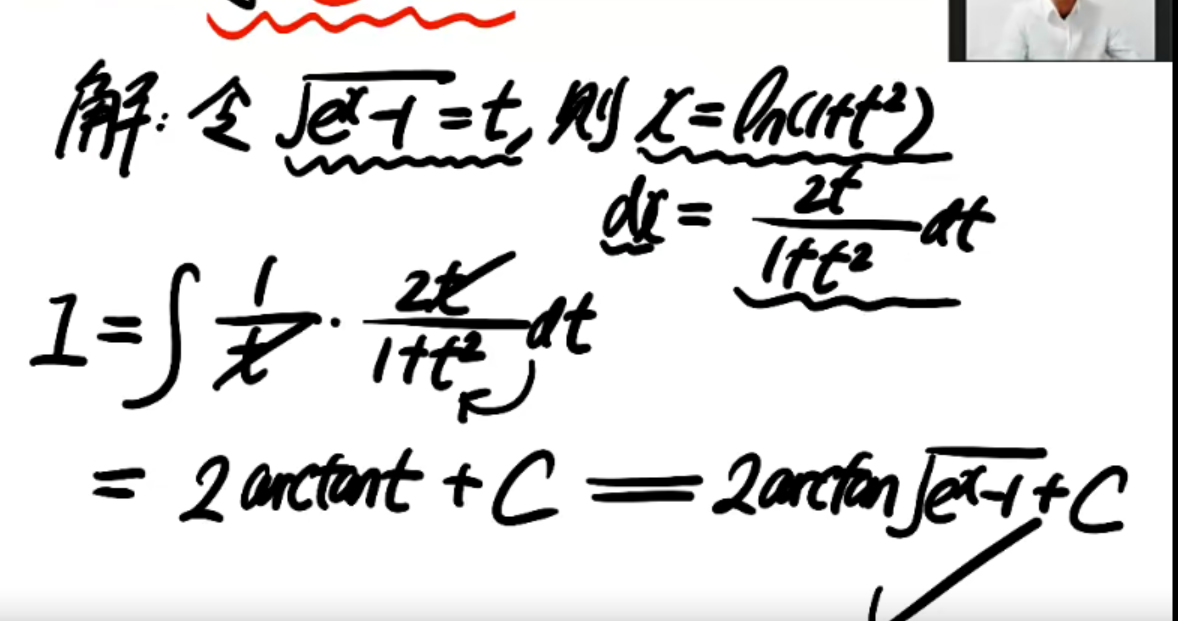 解: 令 √(eˣ-1) = t, 则 x = ln(1+t²)
dx = 2t/(1+t²) dt
I = ∫ 1/t · 2t/(1+t²) dt
= 2arctant + C = 2arctan√(eˣ-1) + C